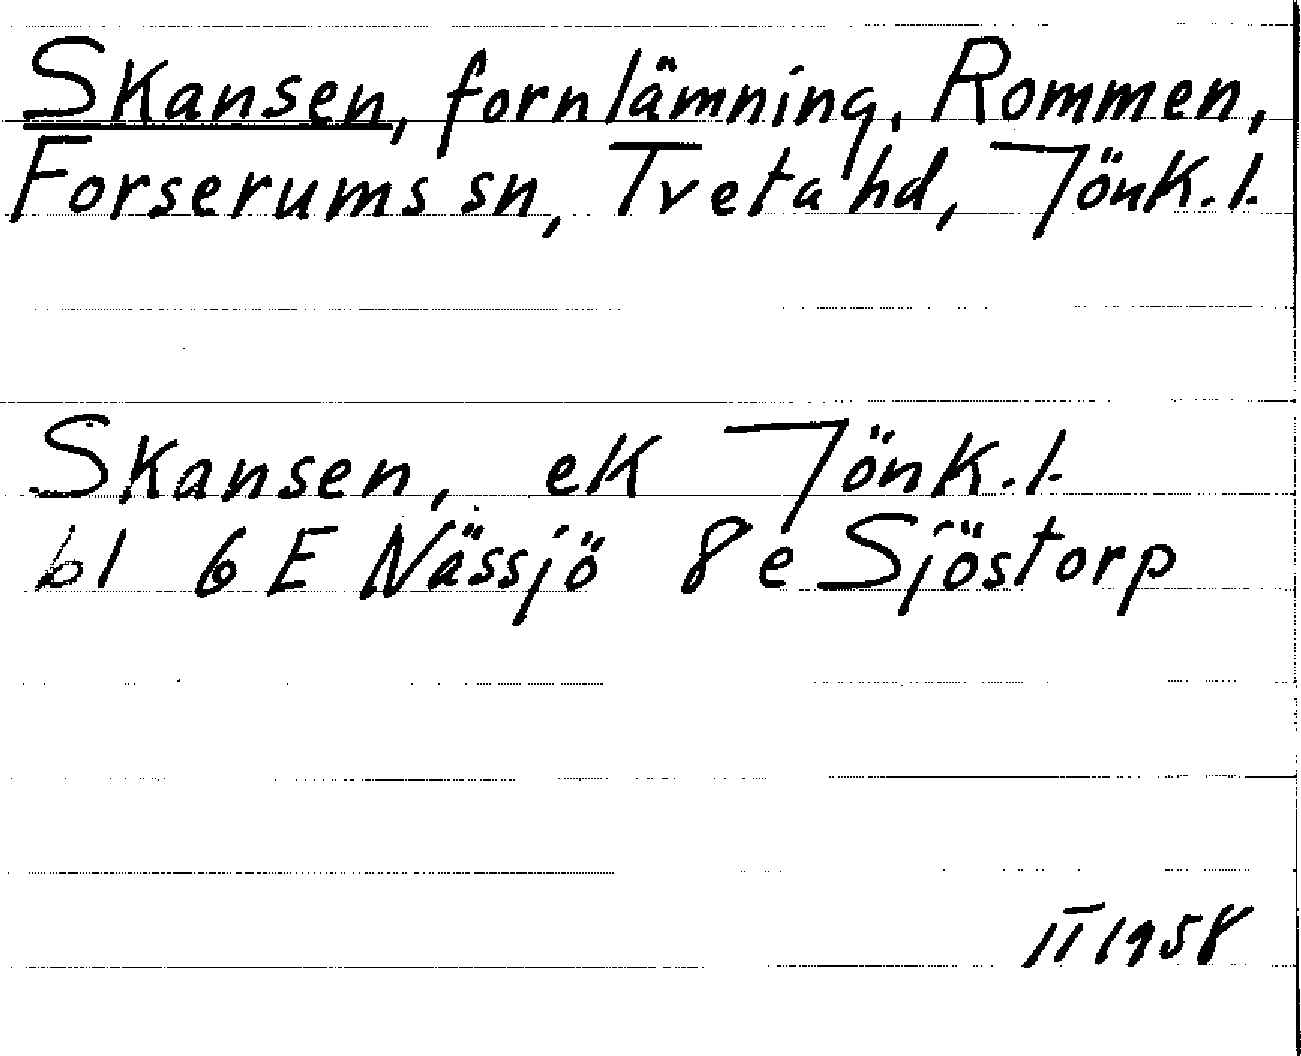 Skansen, fornlämning, Rommen,
Forserums sn, Tveta hd, Jönk.l.
Skansen, ek Jönk.l.
bl 6 E Nässjö 8 e Sjöstorp
II 1958